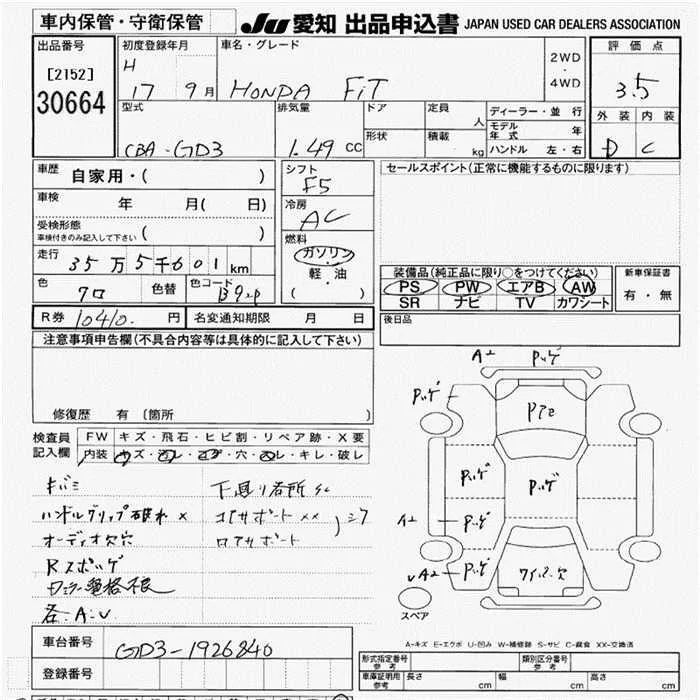 車内保管・守衛保管
JU 愛知 出品申込書 JAPAN USED CAR DEALERS ASSOCIATION
出品番号
[2152]
30664
初度登録年月
H
17 9月
車名・グレード
HONDA FiT
2WD
・
4WD
評価点
3.5
外装 内装
D C
型式
CBA-GD3
排気量
1.49 CC
ドア
形状
定員
人
積載
kg
ディーラー・並行
モデル年式 年
ハンドル 左・右
車歴
自家用・( )
車検
年 月( 日)
受検形態
車検付きのみ記入して下さい ( )
走行
35万5千601km
色
クロ
色替
色コード
B92P
シフト
F5
冷房
AC
燃料
ガソリン
軽・油
( )
セールスポイント(正常に機能するものに限ります)
装備品(純正品に限り○をつけてください)
PS PW エアB AW
SR ナビ TV カワシート
新車保証書
有・無
R券 10410. 円 名変通知期限 月 日
後日品
注意事項申告欄(不具合内容等は具体的に記入して下さい)
修復歴 有 〔箇所 〕
検査員
記入欄
FW キズ・飛石・ヒビ割・リペア跡・X要
内装 キズ・汚レ・コゲ・穴・スレ・キレ・破レ
キバミ
ハンドルグリップ破れ ×
オーディオ欠穴
Rスポッゲ
各A.U
下廻り各所
コアサポート ××
ロアサポート
A2 Pッゲ
Pッゲ
Pアセ
Pッゲ
Pッゲ
A2
Pッゲ
A2
Pッゲ
ワイパー欠
スペア
A-キズ E-エクボ U-凹み W-補修跡 S-サビ C-腐食 XX-交換済
車台番号
GD3-1926840
登録番号
形式指定番号
参考
類別区分番号
参考
車庫証明用
参考
長さ cm 幅 cm 高さ cm